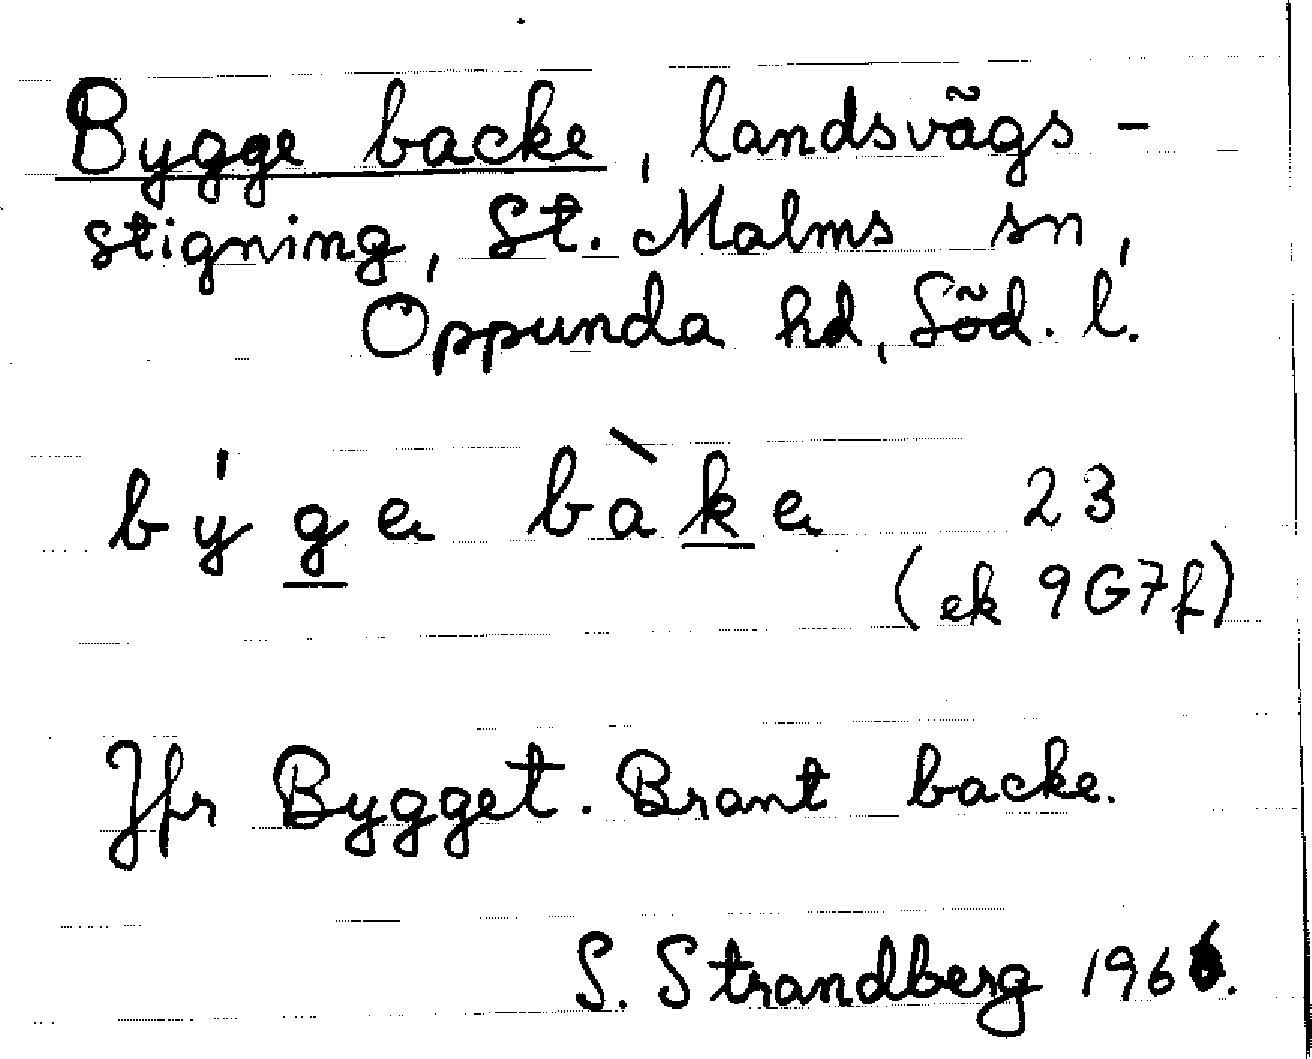 Bygge backe, landsvägs-
stigning, St. Malms sn,
Oppunda hd, Söd. l.
bý̀ge bàke 23
(ek 9G7f)
Jfr Bygget. Brant backe.
S. Strandberg 1966.